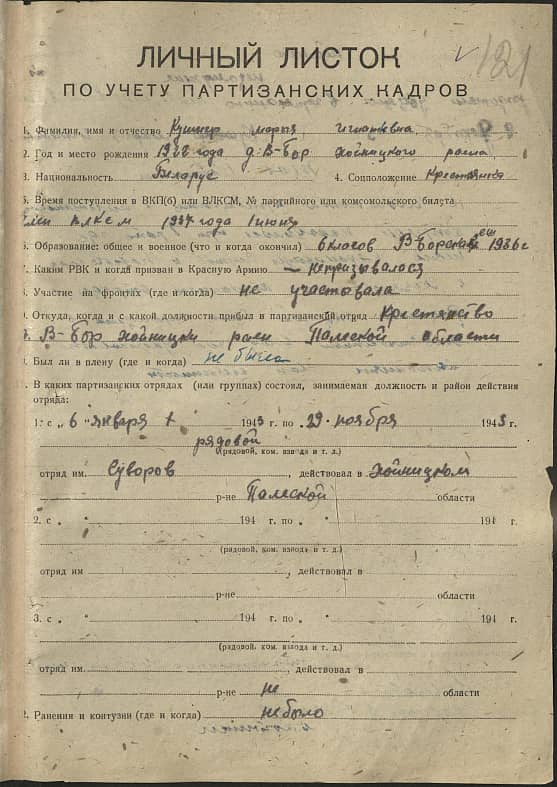 121
ЛИЧНЫЙ ЛИСТОК
ПО УЧЕТУ ПАРТИЗАНСКИХ КАДРОВ
1. Фамилия, имя и отчество Кушнер марыя игнатевна
2. Год и место рождения 19 года д. В-Бор хойницкого раена
3. Национальность Беларус 4. Соцположение Крестянка
5. Время поступления в ВКП(б) или ВЛКСМ, № партийного или комсомольского билета
Член ЛКСМ 1937 года 1 июня
6. Образование: общее и военное (что и когда окончил) 6 класов В-Борская 1936 г
7. Каким РВК и когда призван в Красную Армию — непризывалася
8. Участие на фронтах (где и когда) не участвовала
9. Откуда, когда и с какой должности прибыл в партизанский отряд Крестянство
В-Бор хойницки раен Палеской области
Был ли в плену (где и когда) не была
. В каких партизанских отрядах (или группах) состоял, занимаемая должность и район действия
отряда:
1. с „ 6 " января 1943 г. по „ 29 " ноября 1943 г.
рядовой
(рядовой, ком. взвода и т. д.)
отряд им. Суворов , действовал в хойницком
р-не Палеской области
2. с „ " 194 г. по „ " 194 г.
(рядовой, ком. взвода и т. д.)
отряд им , действовал в
р-не области
3. с „ " 194 г. по „ " 194 г.
(рядовой, ком. взвода и т. д.)
отряд им. , действовал в
р-не не области
2. Ранения и контузии (где и когда) небыло